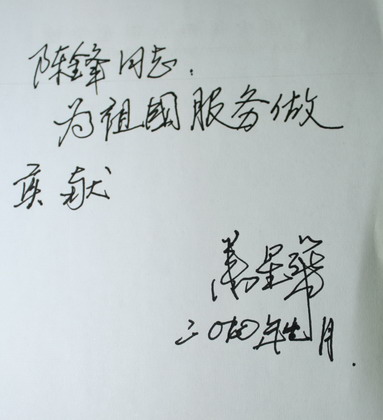 陈锋同志：
为祖國服务做
贡献
萧星华
二〇〇四年 月.